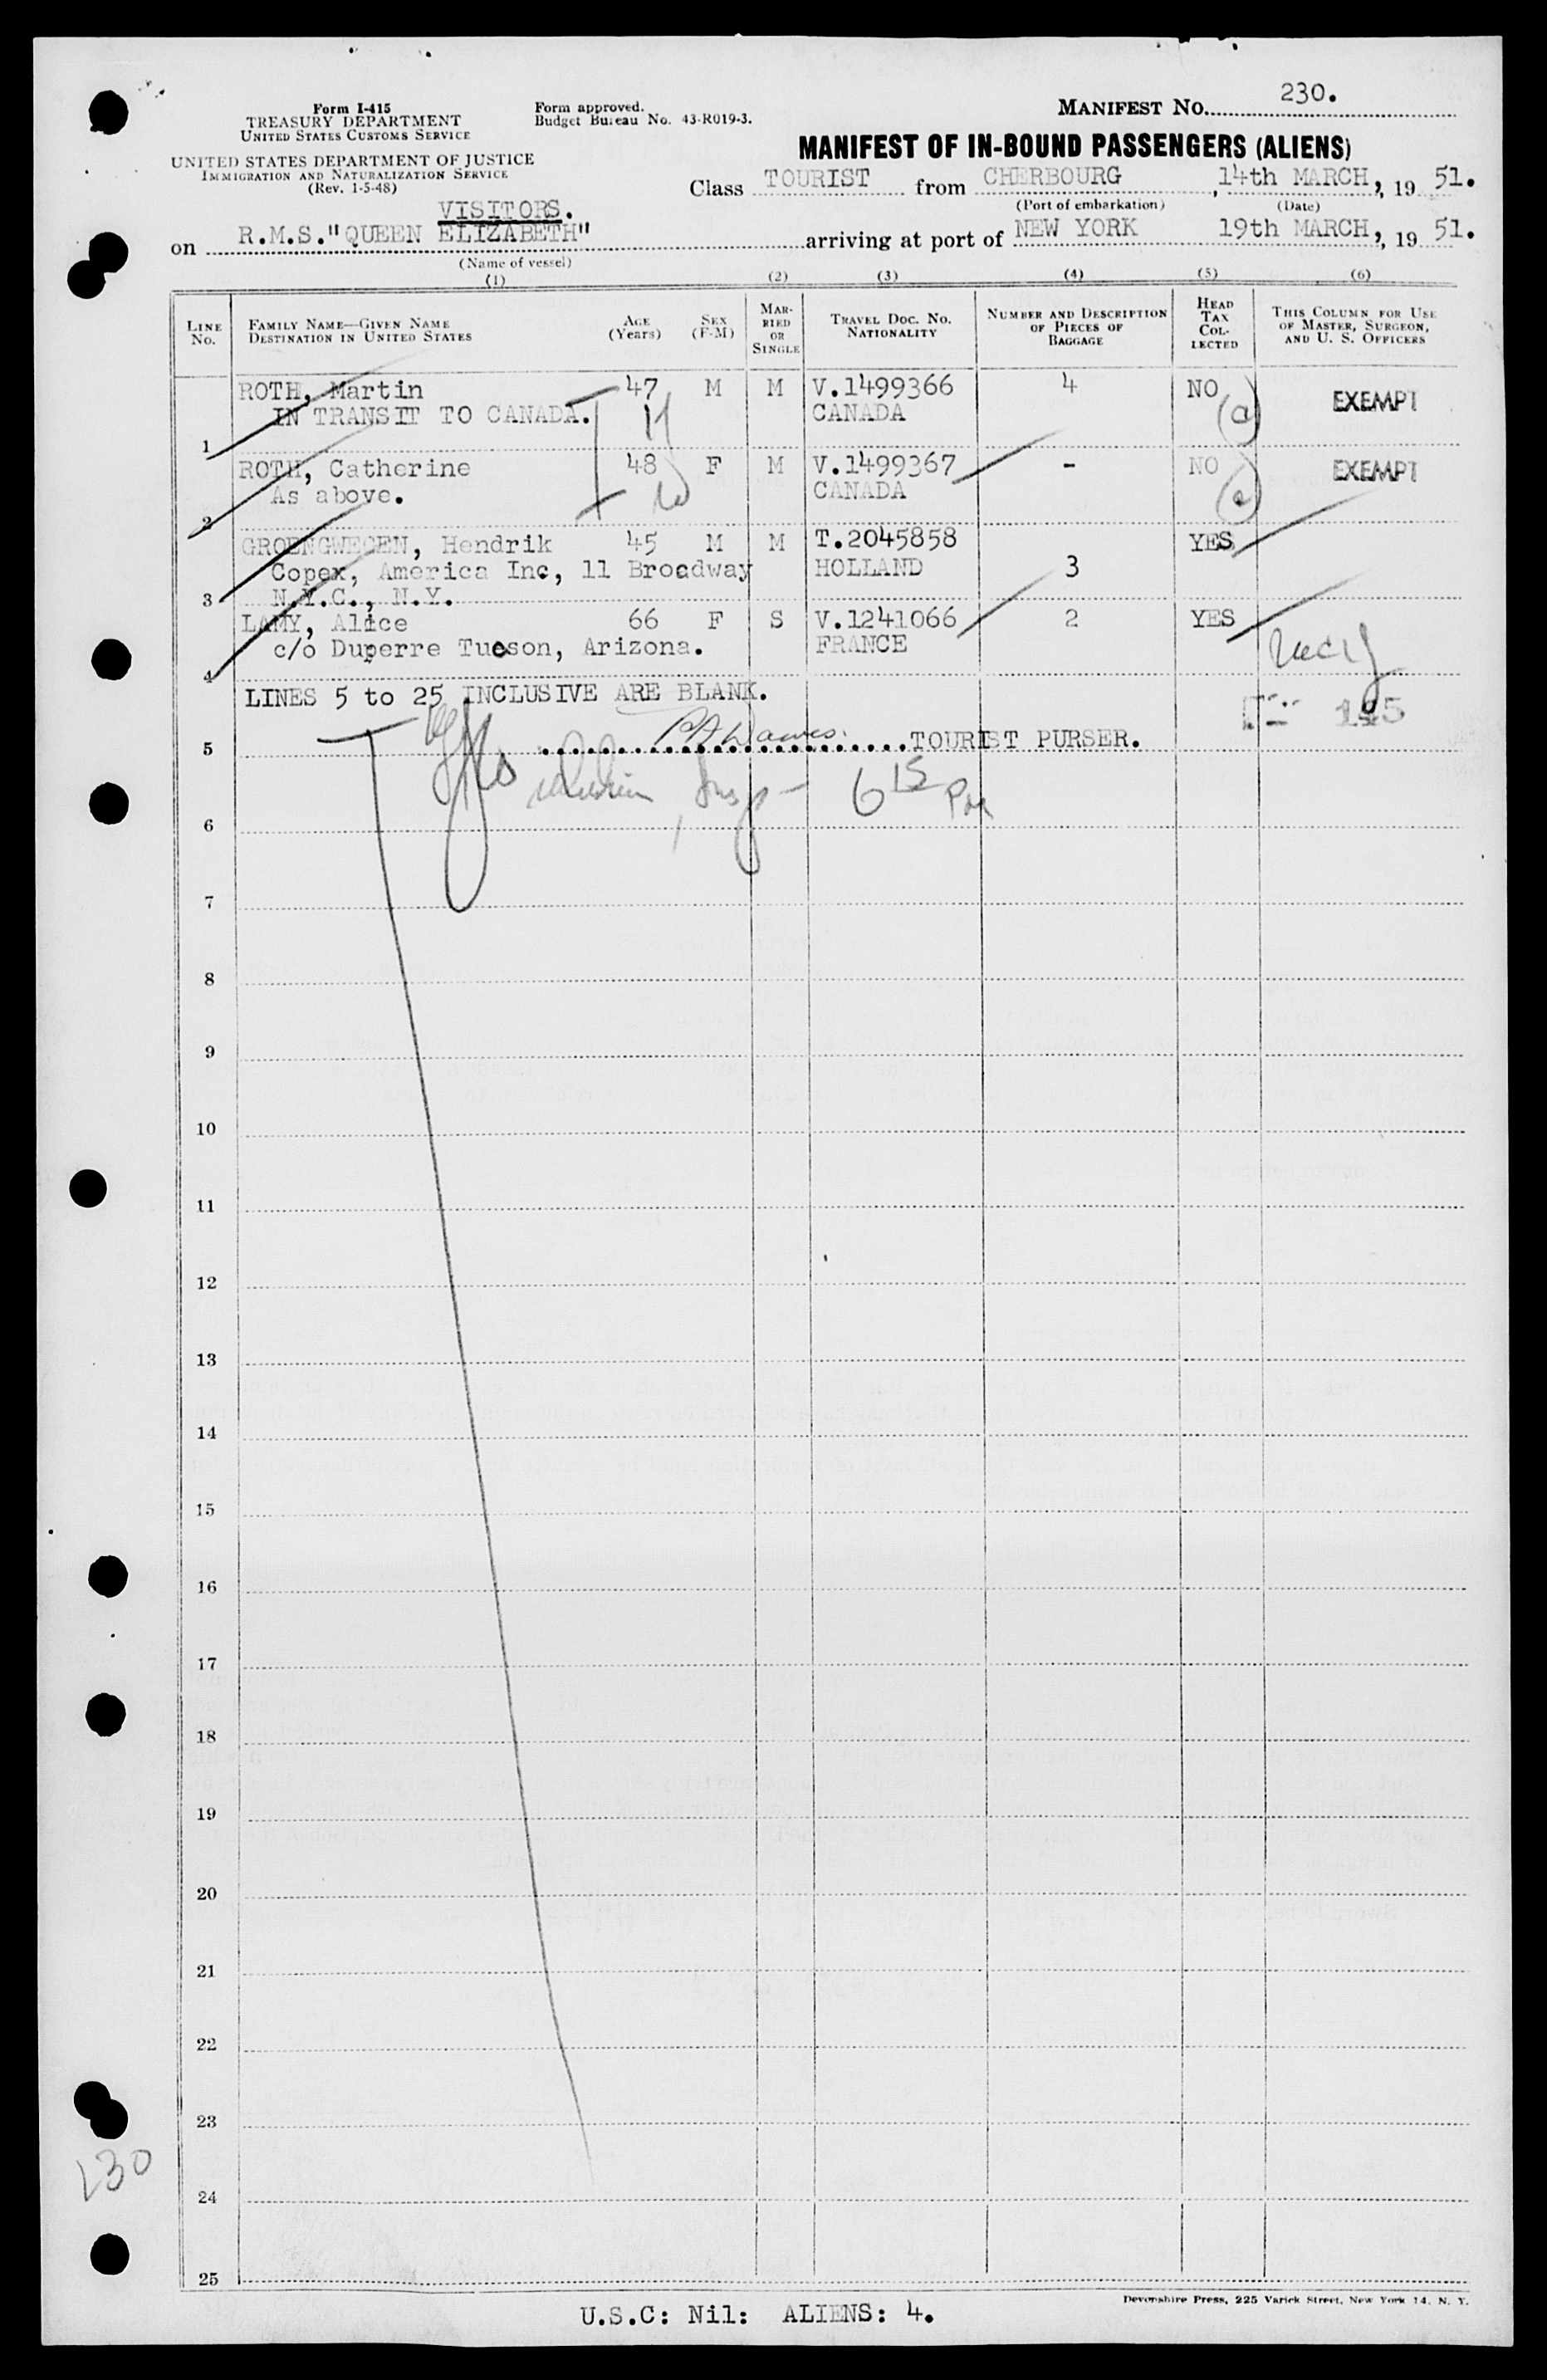 Form I-415
TREASURY DEPARTMENT
UNITED STATES CUSTOMS SERVICE
UNITED STATES DEPARTMENT OF JUSTICE
IMMIGRATION AND NATURALIZATION SERVICE
(Rev. 1-5-48)
Form approved.
Budget Bureau No. 43-R019-3.
MANIFEST No. 230.
MANIFEST OF IN-BOUND PASSENGERS (ALIENS)
Class TOURIST from CHERBOURG, 14th MARCH, 19 51.
(Port of embarkation) (Date)
VISITORS.
on R.M.S."QUEEN ELIZABETH" arriving at port of NEW YORK 19th MARCH, 19 51.
(Name of vessel)
(1) (2) (3) (4) (5) (6)
LINE No. FAMILY NAME—GIVEN NAME DESTINATION IN UNITED STATES AGE (Years) SEX (F-M) MARRIED OR SINGLE TRAVEL DOC. NO. NATIONALITY NUMBER AND DESCRIPTION OF PIECES OF BAGGAGE HEAD TAX COLLECTED THIS COLUMN FOR USE OF MASTER, SURGEON, AND U. S. OFFICERS
ROTH, Martin 47 M M V.1499366 4 NO (a) EXEMPT
IN TRANSIT TO CANADA. CANADA
1
ROTH, Catherine 48 F M V.1499367 - NO (a) EXEMPT
As above. CANADA
2
GROENGWEGEN, Hendrik 45 M M T.2045858 YES
Copex, America Inc, 11 Broadway HOLLAND 3
3 N.Y.C., N.Y.
LAMY, Alice 66 F S V.1241066 2 YES
c/o Duperre Tucson, Arizona. FRANCE
4
LINES 5 to 25 INCLUSIVE ARE BLANK.
145
5 TOURIST PURSER.
6 15 PM
6
7
8
9
10
11
12
13
14
15
16
17
18
19
20
21
22
23
230
24
25
Devonshire Press, 225 Varick Street, New York 14, N. Y.
U.S.C: Nil: ALIENS: 4.